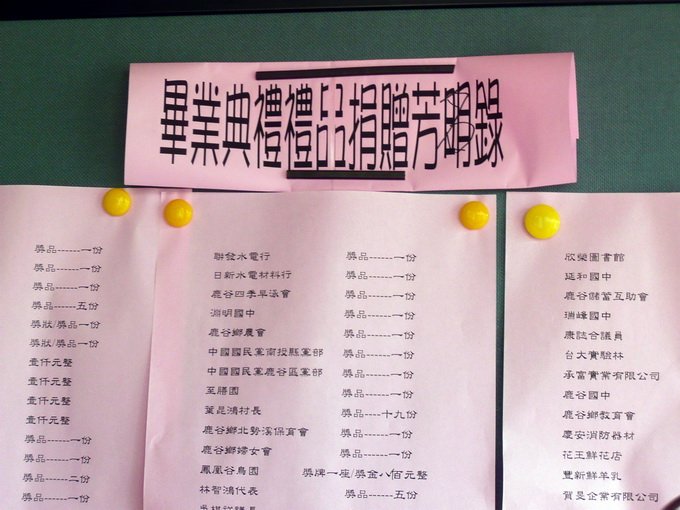 畢業典禮禮品捐贈芳明錄
獎品------一份
獎品------一份
獎品------一份
獎品------五份
獎狀/獎品--一份
獎狀/獎品--一份
壹仟元整
壹仟元整
壹仟元整
壹仟元整
獎品------一份
獎品------一份
獎品------二份
獎品------一份
聯發水電行 獎品------一份
日新水電材料行 獎品------一份
鹿谷四季早泳會 獎品------一份
淵明國中 獎品------一份
鹿谷鄉農會 獎品------一份
中國國民黨南投縣黨部 獎品------一份
中國國民黨鹿谷區黨部 獎品------一份
至勝園 獎品------一份
葉昆鴻村長 獎品----十九份
鹿谷鄉北勢溪保育會 獎品------一份
鹿谷鄉婦女會 獎品------一份
鳳凰谷鳥園 獎牌一座/獎金八佰元整
林智鴻代表 獎品------五份
欣榮圖書館
延和國中
鹿谷儲蓄互助會
瑞峰國中
康誌合議員
台大實驗林
承富實業有限公司
鹿谷國中
鹿谷鄉教育會
慶安消防器材
花王鮮花店
豐新鮮羊乳
質旻企業有限公司